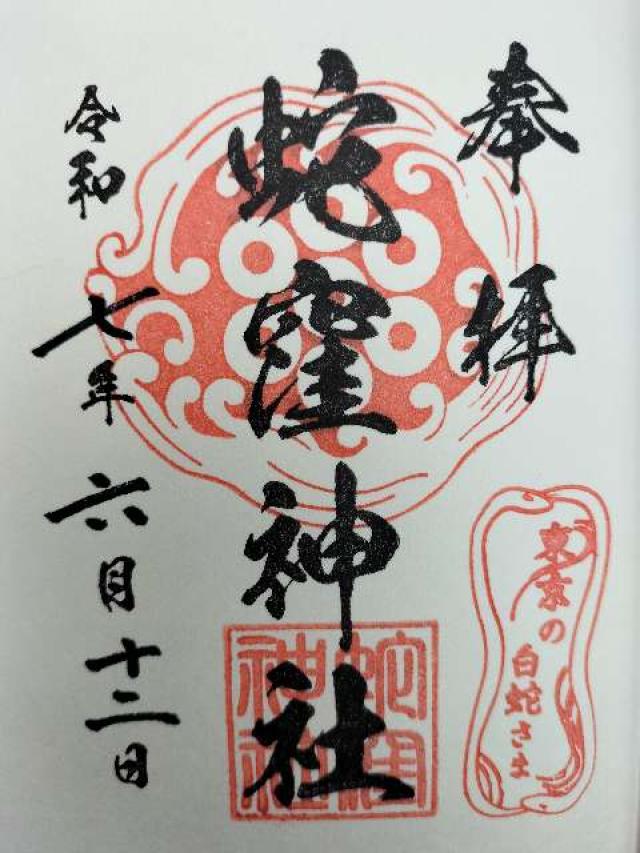 奉拝
蛇窪神社
令和七年六月十二日
東京の
白蛇さま
蛇窪
神社